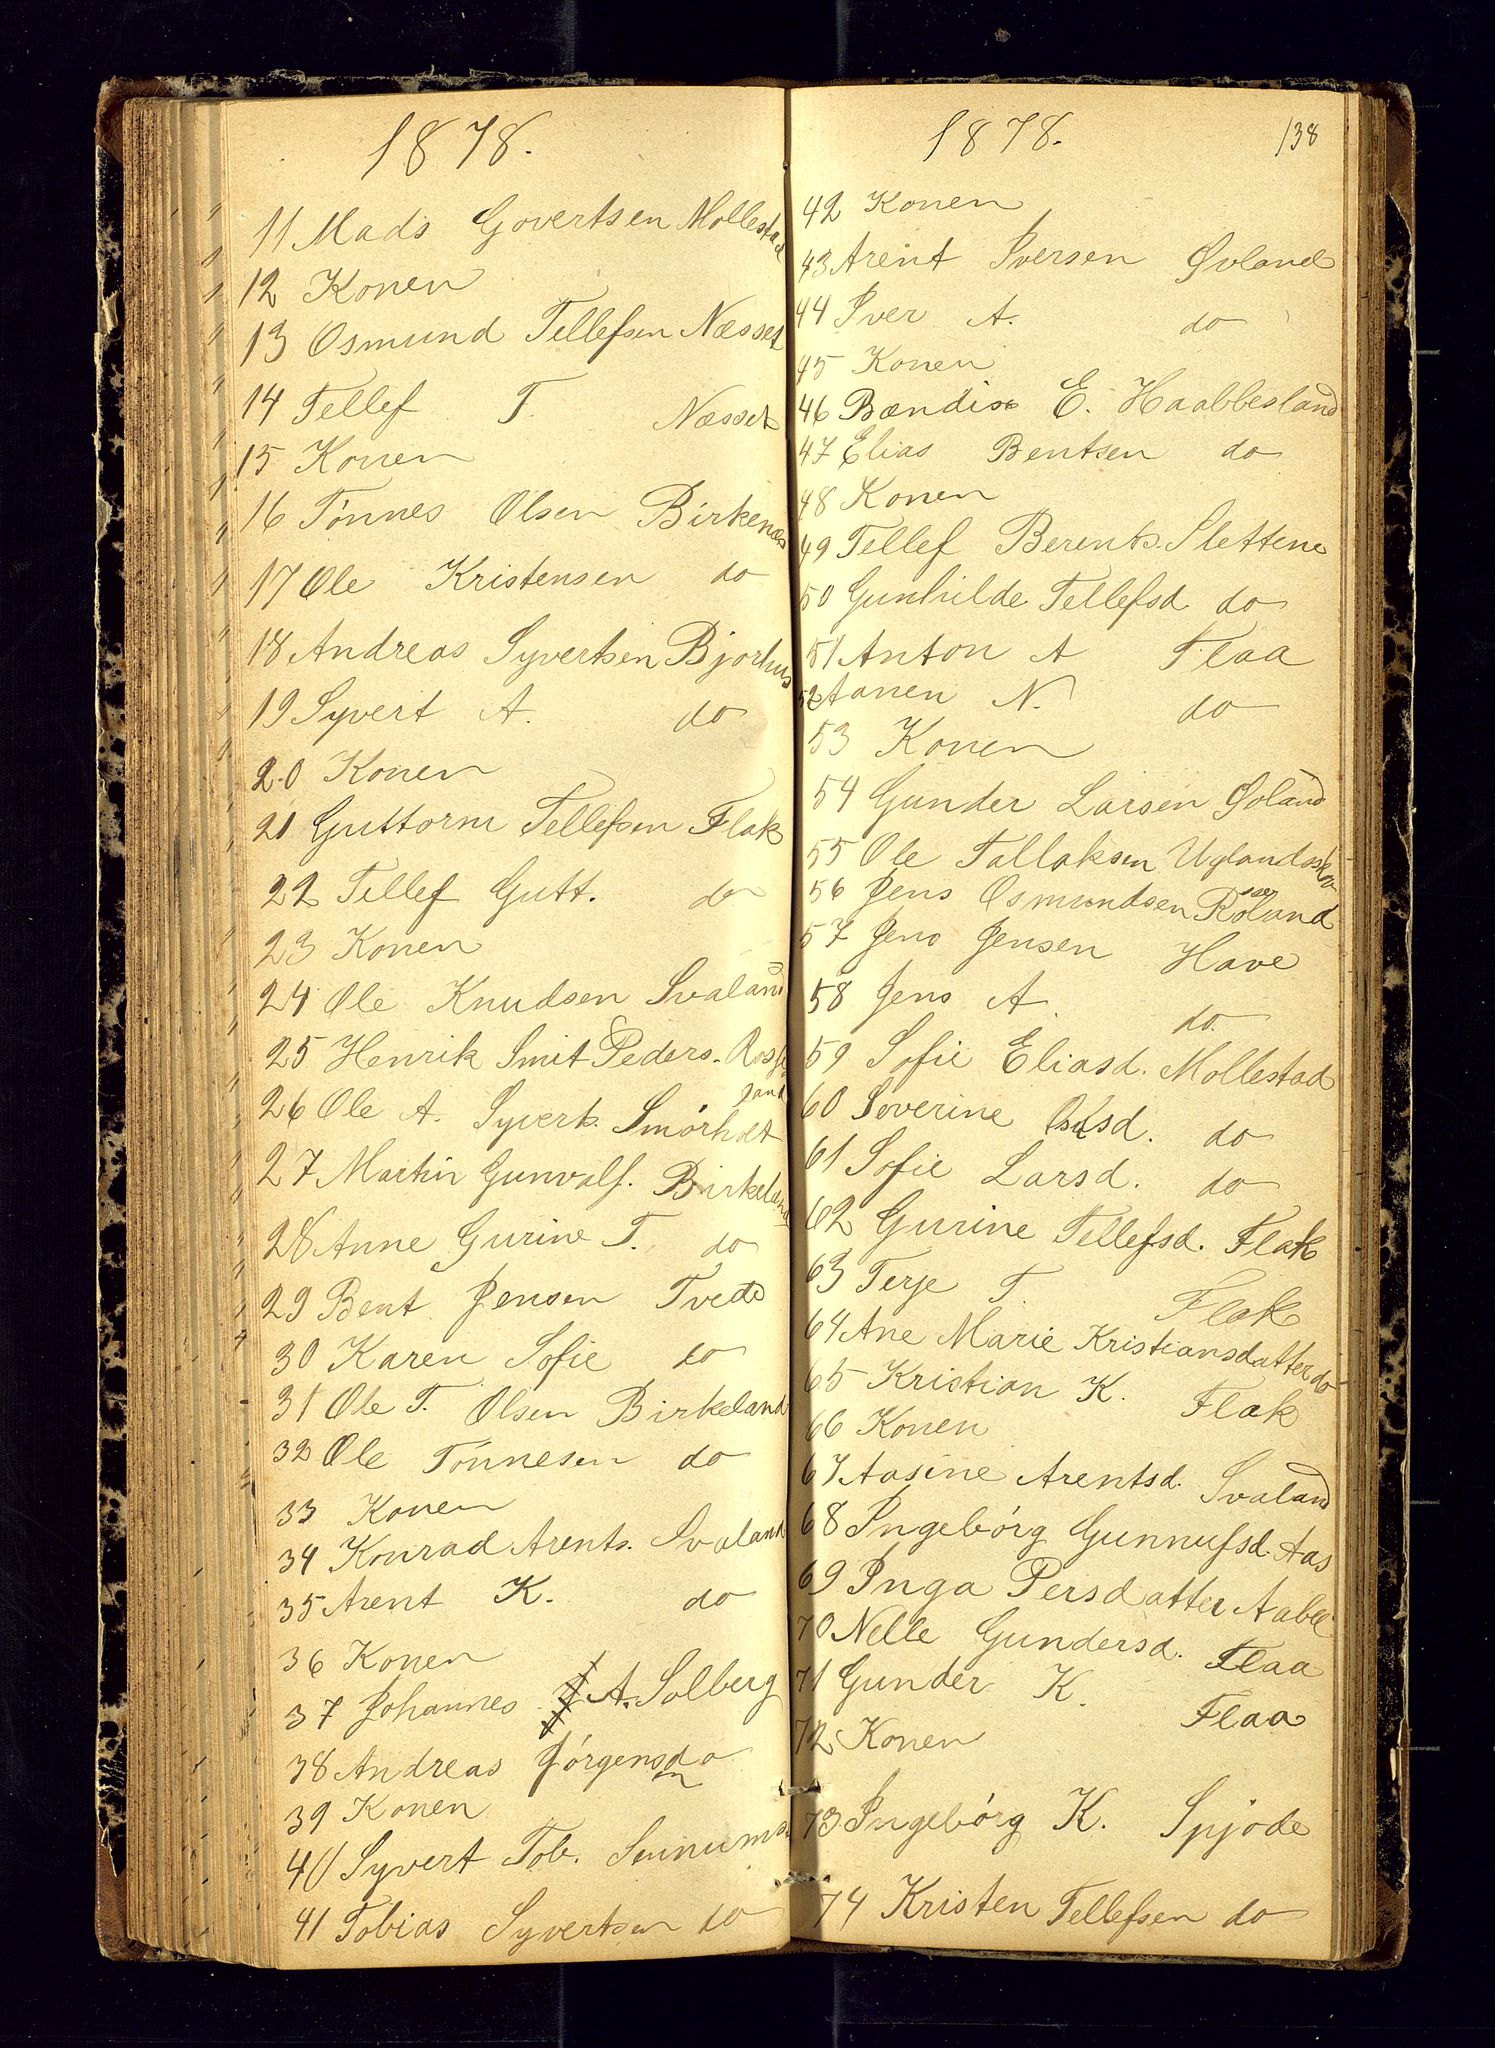 1878.
11 Mads Govertsen Mollestad
12 Konen
13 Osmund Tellefsen Næsset
14 Tellef T. Næsset
15 Konen
16 Tønnes Olsen Birkenæs
17 Ole Kristensen do
18 Andreas Syvertsen Bjorhus
19 Syvert A. do
20 Konen
21 Guttorm Tellefsen Flak
22 Tellef Gutt. do
23 Konen
24 Ole Knudsen Svaland
25 Henrik Smit Peders. Rosse
land
26 Ole A. Syverts. Smørholt
27 Martin Gunvalf. Birkeland
28 Anne Gurine T. do
29 Bent Jensen Tvede
30 Karen Sofie do
31 Ole T. Olsen Birkeland
32 Ole Tønnesen do
33 Konen
34 Konrad Arents. Svaland
35 Arent K. do
36 Konen
37 Johannes A. Solberg
38 Andreas Jørgensen do
39 Konen
40 Syvert Tob. Senums
41 Tobias Syvertsen do
1878.
138
42 Konen
43 Arent Iversen Øvland
44 Iver A. do
45 Konen
46 Bændix E. Haabbesland
47 Elias Bentsen do
48 Konen
49 Tellef Berents. Slettene
50 Gunhilde Tellefsd. do
51 Anton A Flaa
52 Aanen N. do
53 Konen
54 Gunder Larsen Øvland
55 Ole Tallaksen Uglandsskov
56 Jens Osmundsen Rosseland
57 Jens Jensen Have
58 Jens A. do.
59 Sofie Eliasd. Mollestad
60 Severine Olsd. do
61 Sofie Larsd. do
62 Gurine Tellefsd. Flak
63 Terje T. Flak
64 Ane Marie Kristiansdatter do
65 Kristian K. Flak
66 Konen
67 Aasine Arentsd. Svaland
68 Ingebørg Gunnufsd. Aas
69 Inga Persdatter Aabel
70 Nelle Gundersd. Flaa
71 Gunder K. Flaa
72 Konen
73 Ingebørg K. Spjode
74 Kristen Tellefsen do